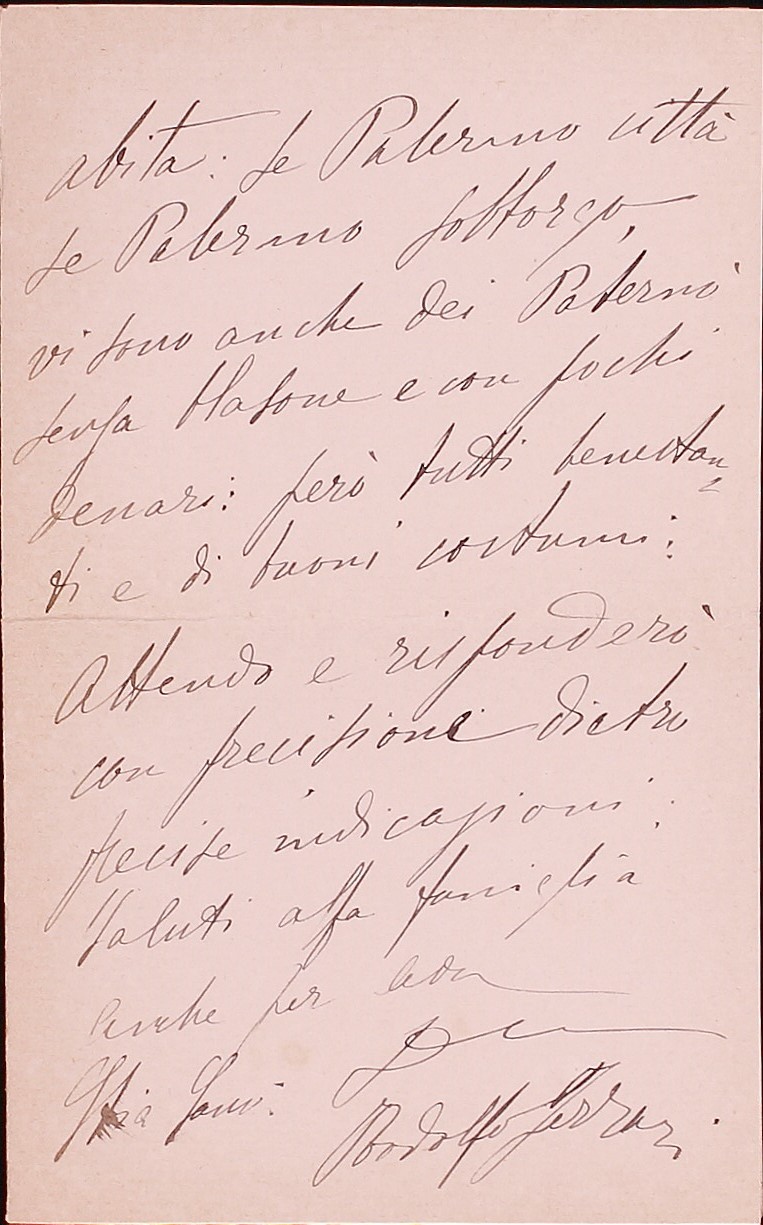 abita: se Palermo città
se Palermo sobborgo,
vi sono anche dei Paternò
senza blasone e con pochi
denari: però tutti benestan=
ti e di buoni costumi:
Attendo e risponderò
con precisione dietro
precise indicazioni:
Saluti alla famiglia
anche per
Stia sano:
Rodolfo Ferrari